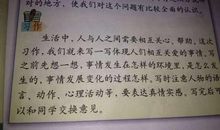 对的地方，使我们对这个问题有比较全面的认识。
习作
生活中，人与人之间需要相互关心、帮助，这次
习作，我们就来写一写体现人们相互关爱的事情。写
之前先想一想，事情发生在怎样的环境里，是怎么发
生的，事情发展变化的过程怎样。写时注意人物的语
言、动作、心理活动等，要表达真情实感，写完后可
以和同学交换意见。